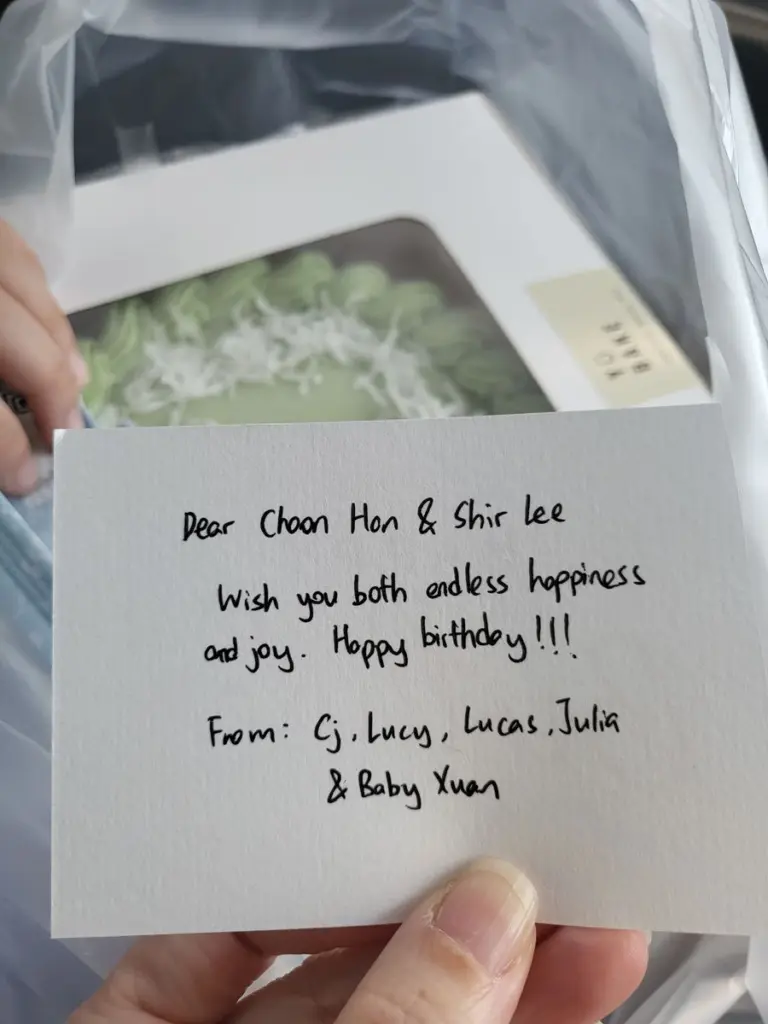 BAKE
Dear Choon Hon & Shir Lee
Wish you both endless happiness
and joy. Happy birthday!!!
From: Cj, Lucy, Lucas, Julia
& Baby Xuan